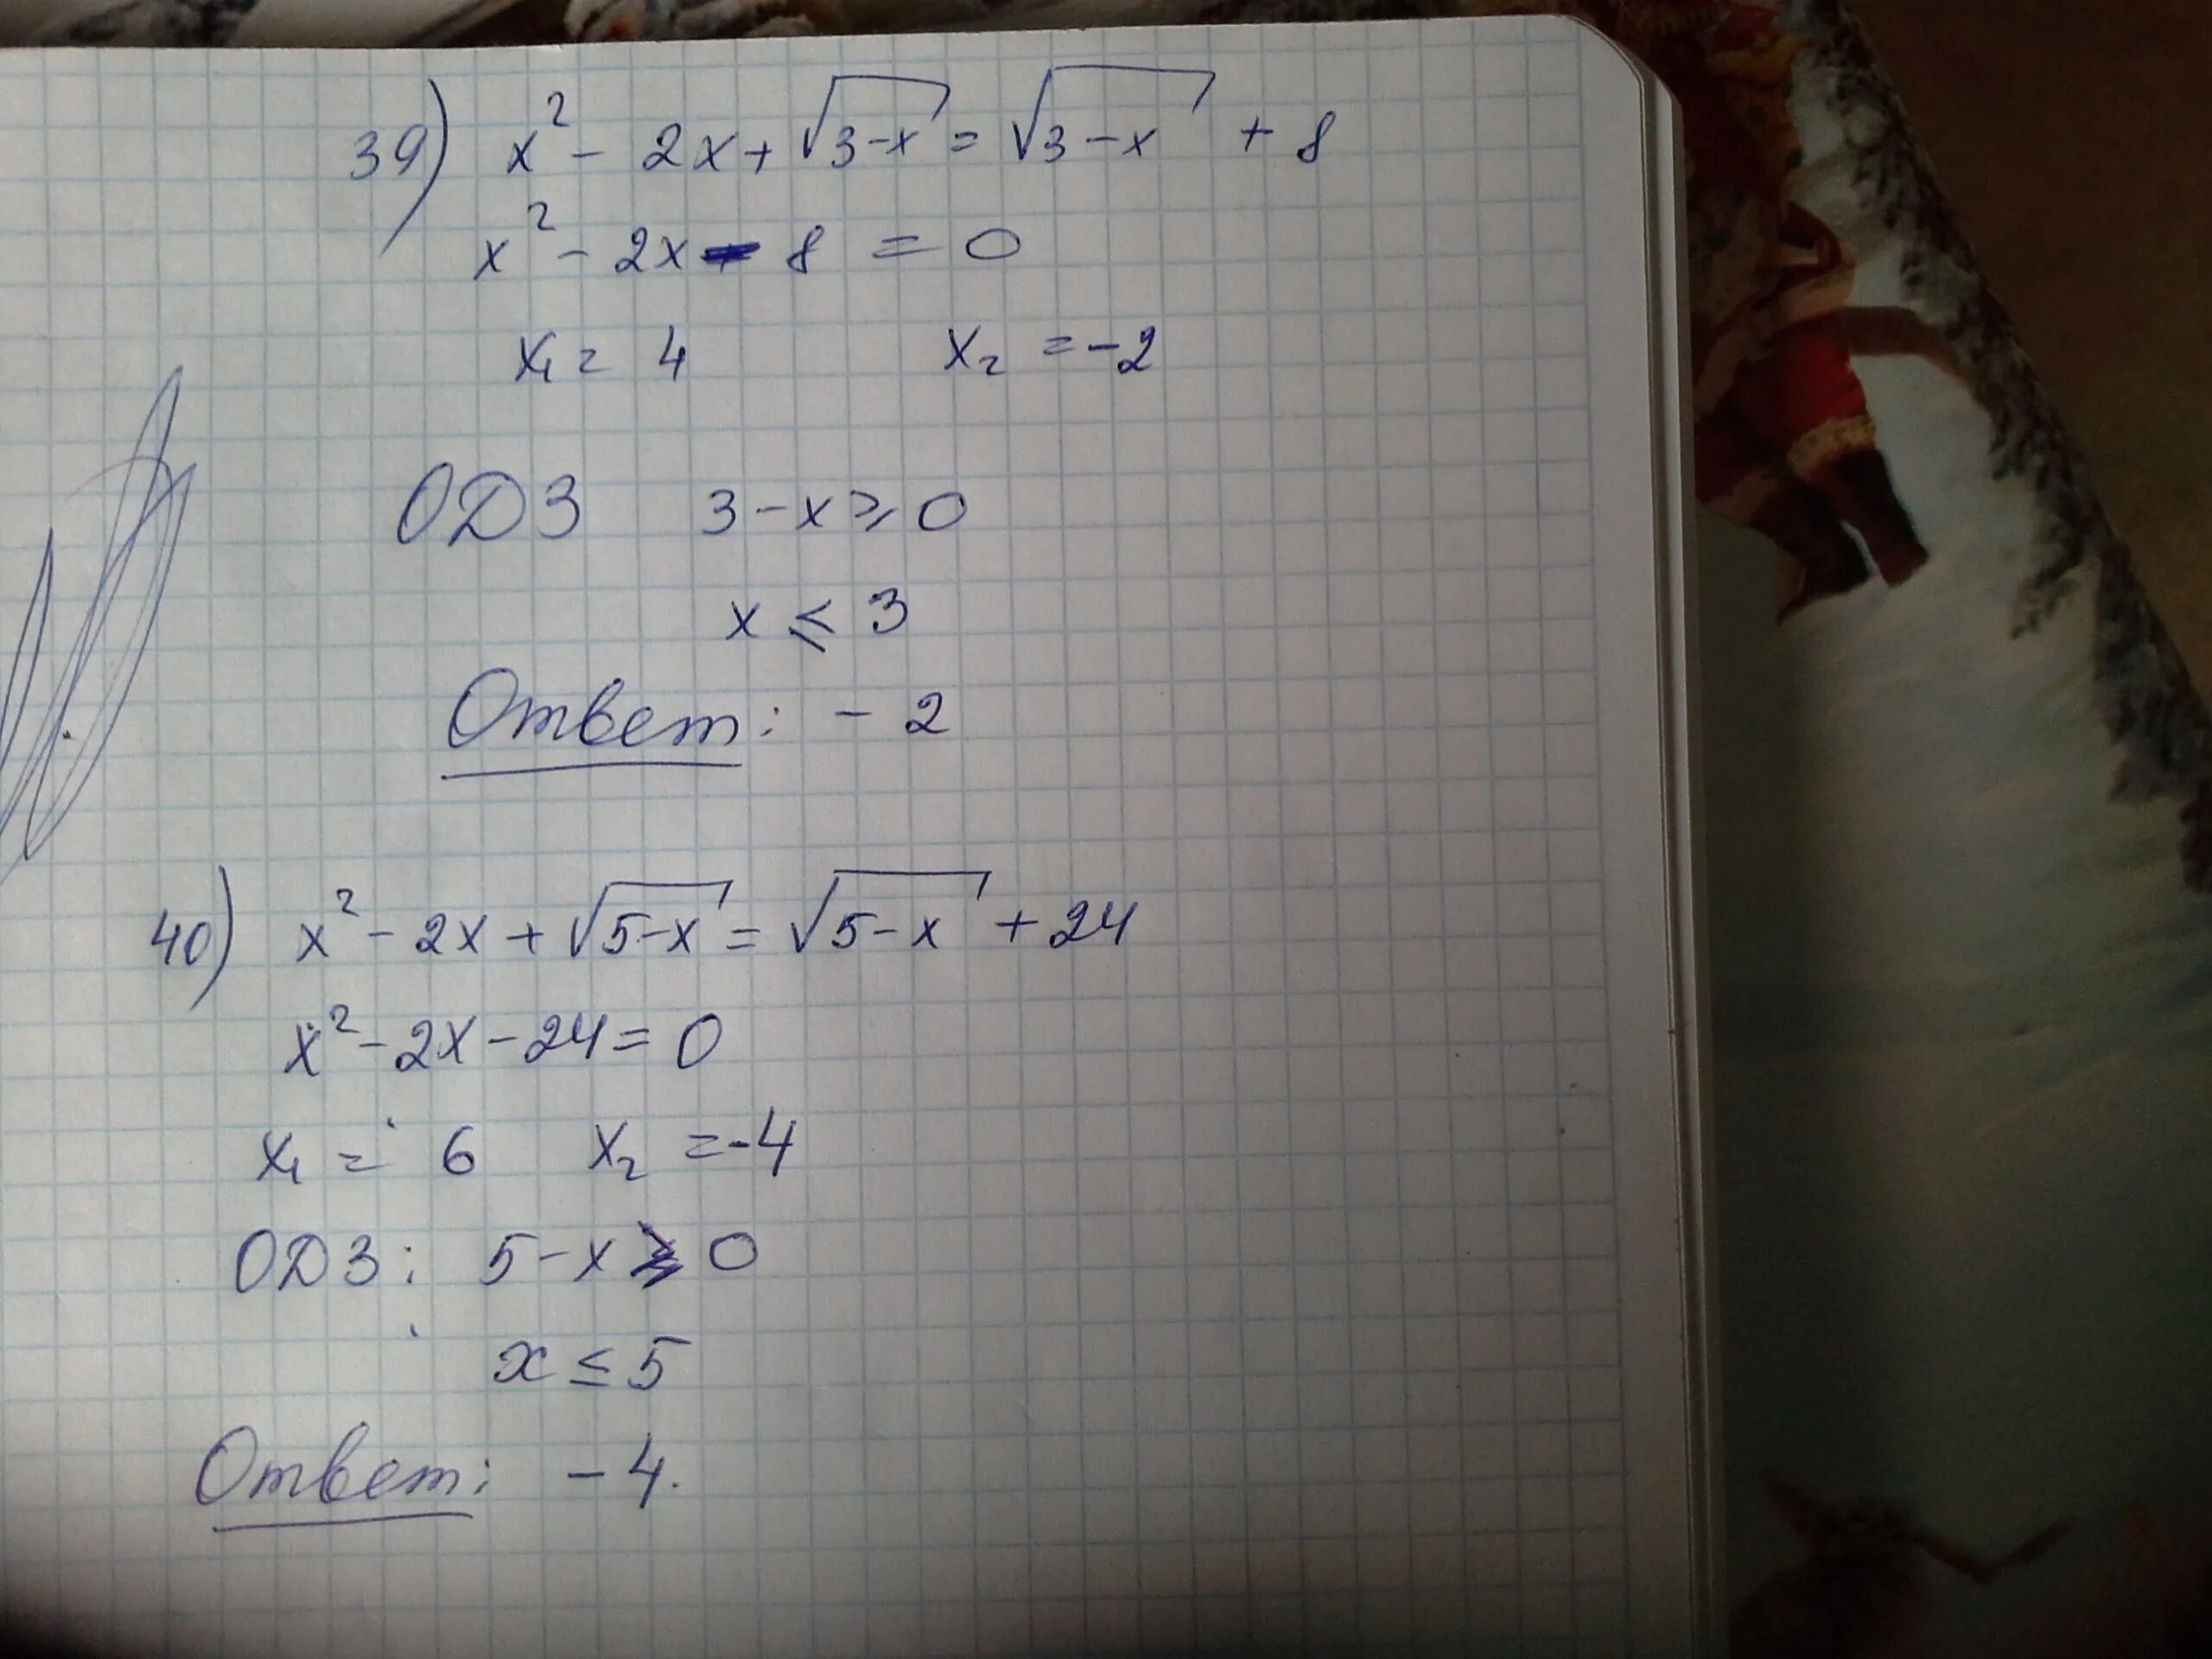 39) x² - 2x + √(3-x) = √(3-x) + 8
x² - 2x - 8 = 0
x₁ = 4 x₂ = -2
ОДЗ 3-x ≥ 0
x ≤ 3
Ответ: - 2
40) x² - 2x + √(5-x) = √(5-x) + 24
x² - 2x - 24 = 0
x₁ = 6 x₂ = -4
ОДЗ: 5-x ≥ 0
x ≤ 5
Ответ: - 4.